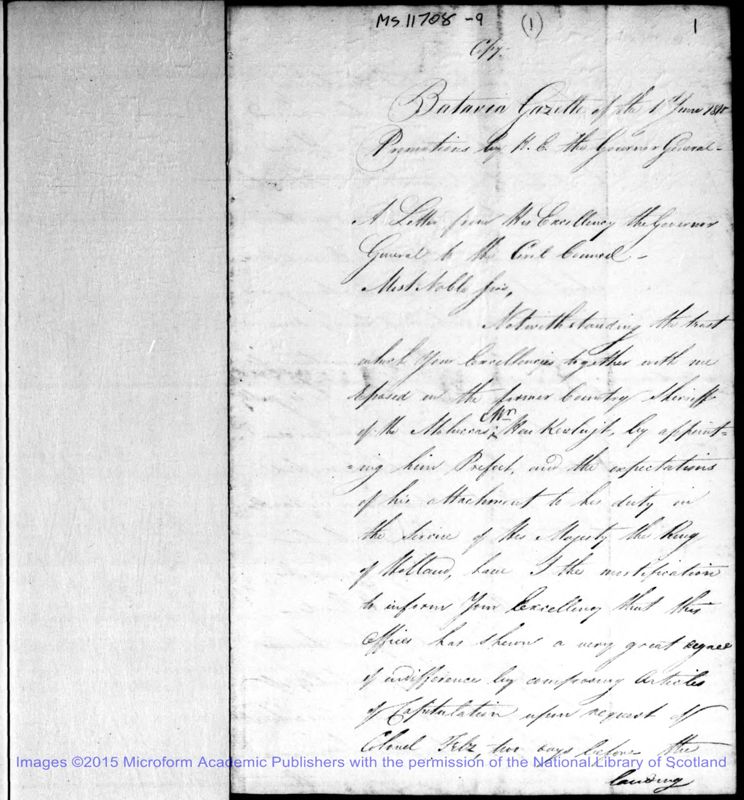 MS. 11708 -9 (1) 1
Copy.
Batavia Gazette of the 1st June 1810
Promotions by H. E. the Governor General -
A Letter from His Excellency the Governor
General to the Civil Council -
Most Noble Sirs,
Notwithstanding the trust
which Your Excellencies together with me
reposed in the former Country Sheriff
of the Moluccas, Mr Van Kerlugt, by appoint=
=ing him Prefect, and the expectations
of his attachment to his duty in
the Service of His Majesty the King
of Holland, have I the mortification
to inform Your Excellency that this
Officer has shewn a very great degree
of indifference by composing Articles
of Capitulation upon request of
Colonel Filz two days before the
landing
Images ©2015 Microform Academic Publishers with the permission of the National Library of Scotland